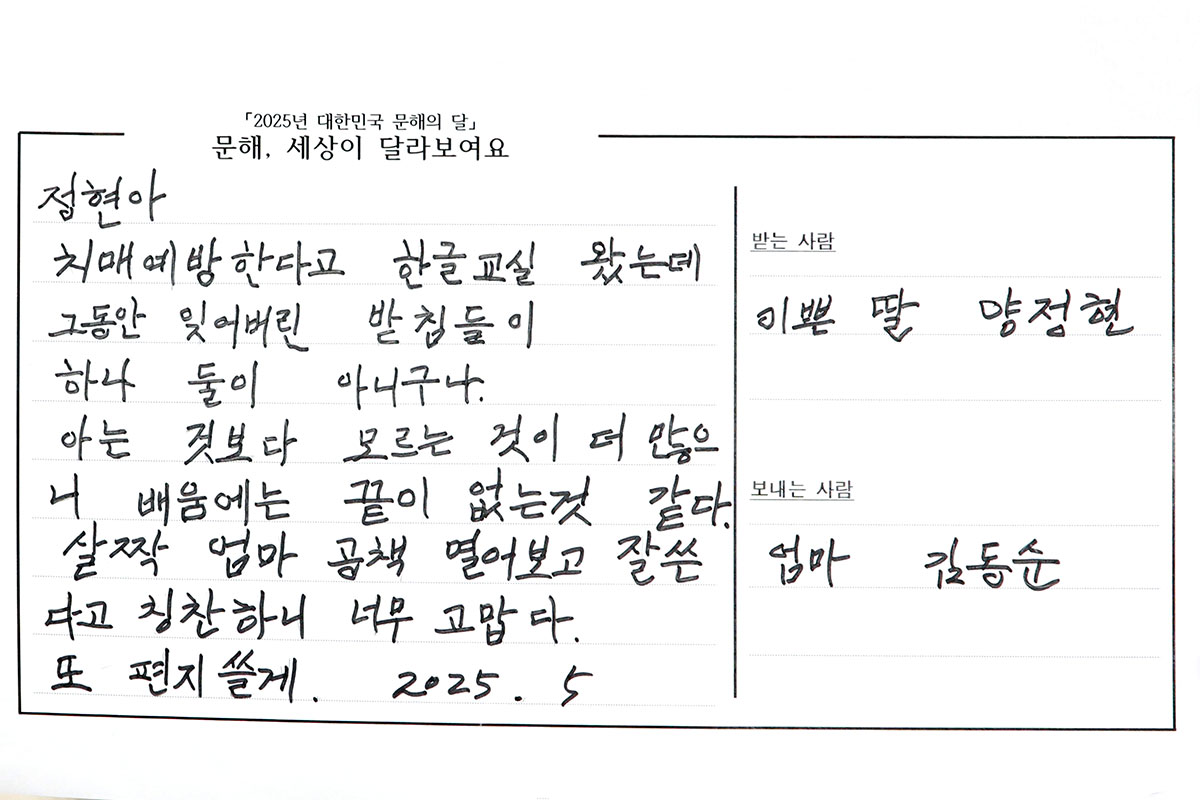 「2025년 대한민국 문해의 달」
문해, 세상이 달라보여요
정현아
치매예방한다고 한글교실 왔는데
그동안 잊어버린 받침들이
하나 둘이 아니구나.
아는 것보다 모르는 것이 더 많으
니 배움에는 끝이 없는것 같다.
살짝 엄마 공책 열어보고 잘쓴
다고 칭찬하니 너무 고맙다.
또 편지쓸게. 2025. 5
받는 사람
이쁜 딸 양정현
보내는 사람
엄마 김동순